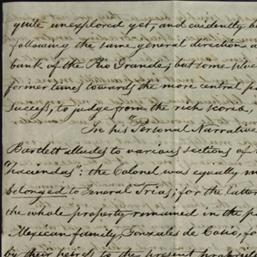 quite unexplored yet, and evidently b
following the same general direction a
bank of the Rio Grande; but some silve
former times towards the more central pa
success, to judge from the rich scoria,
In his Personal Narrative
Bartlett alludes to various sections of
Haciendas": the Colonel was equally m
belonged to General Trias; for the latter
the whole property remained in the p
Mexican family, Gonzales de Cosio, fo
by their heirs to the present propriet